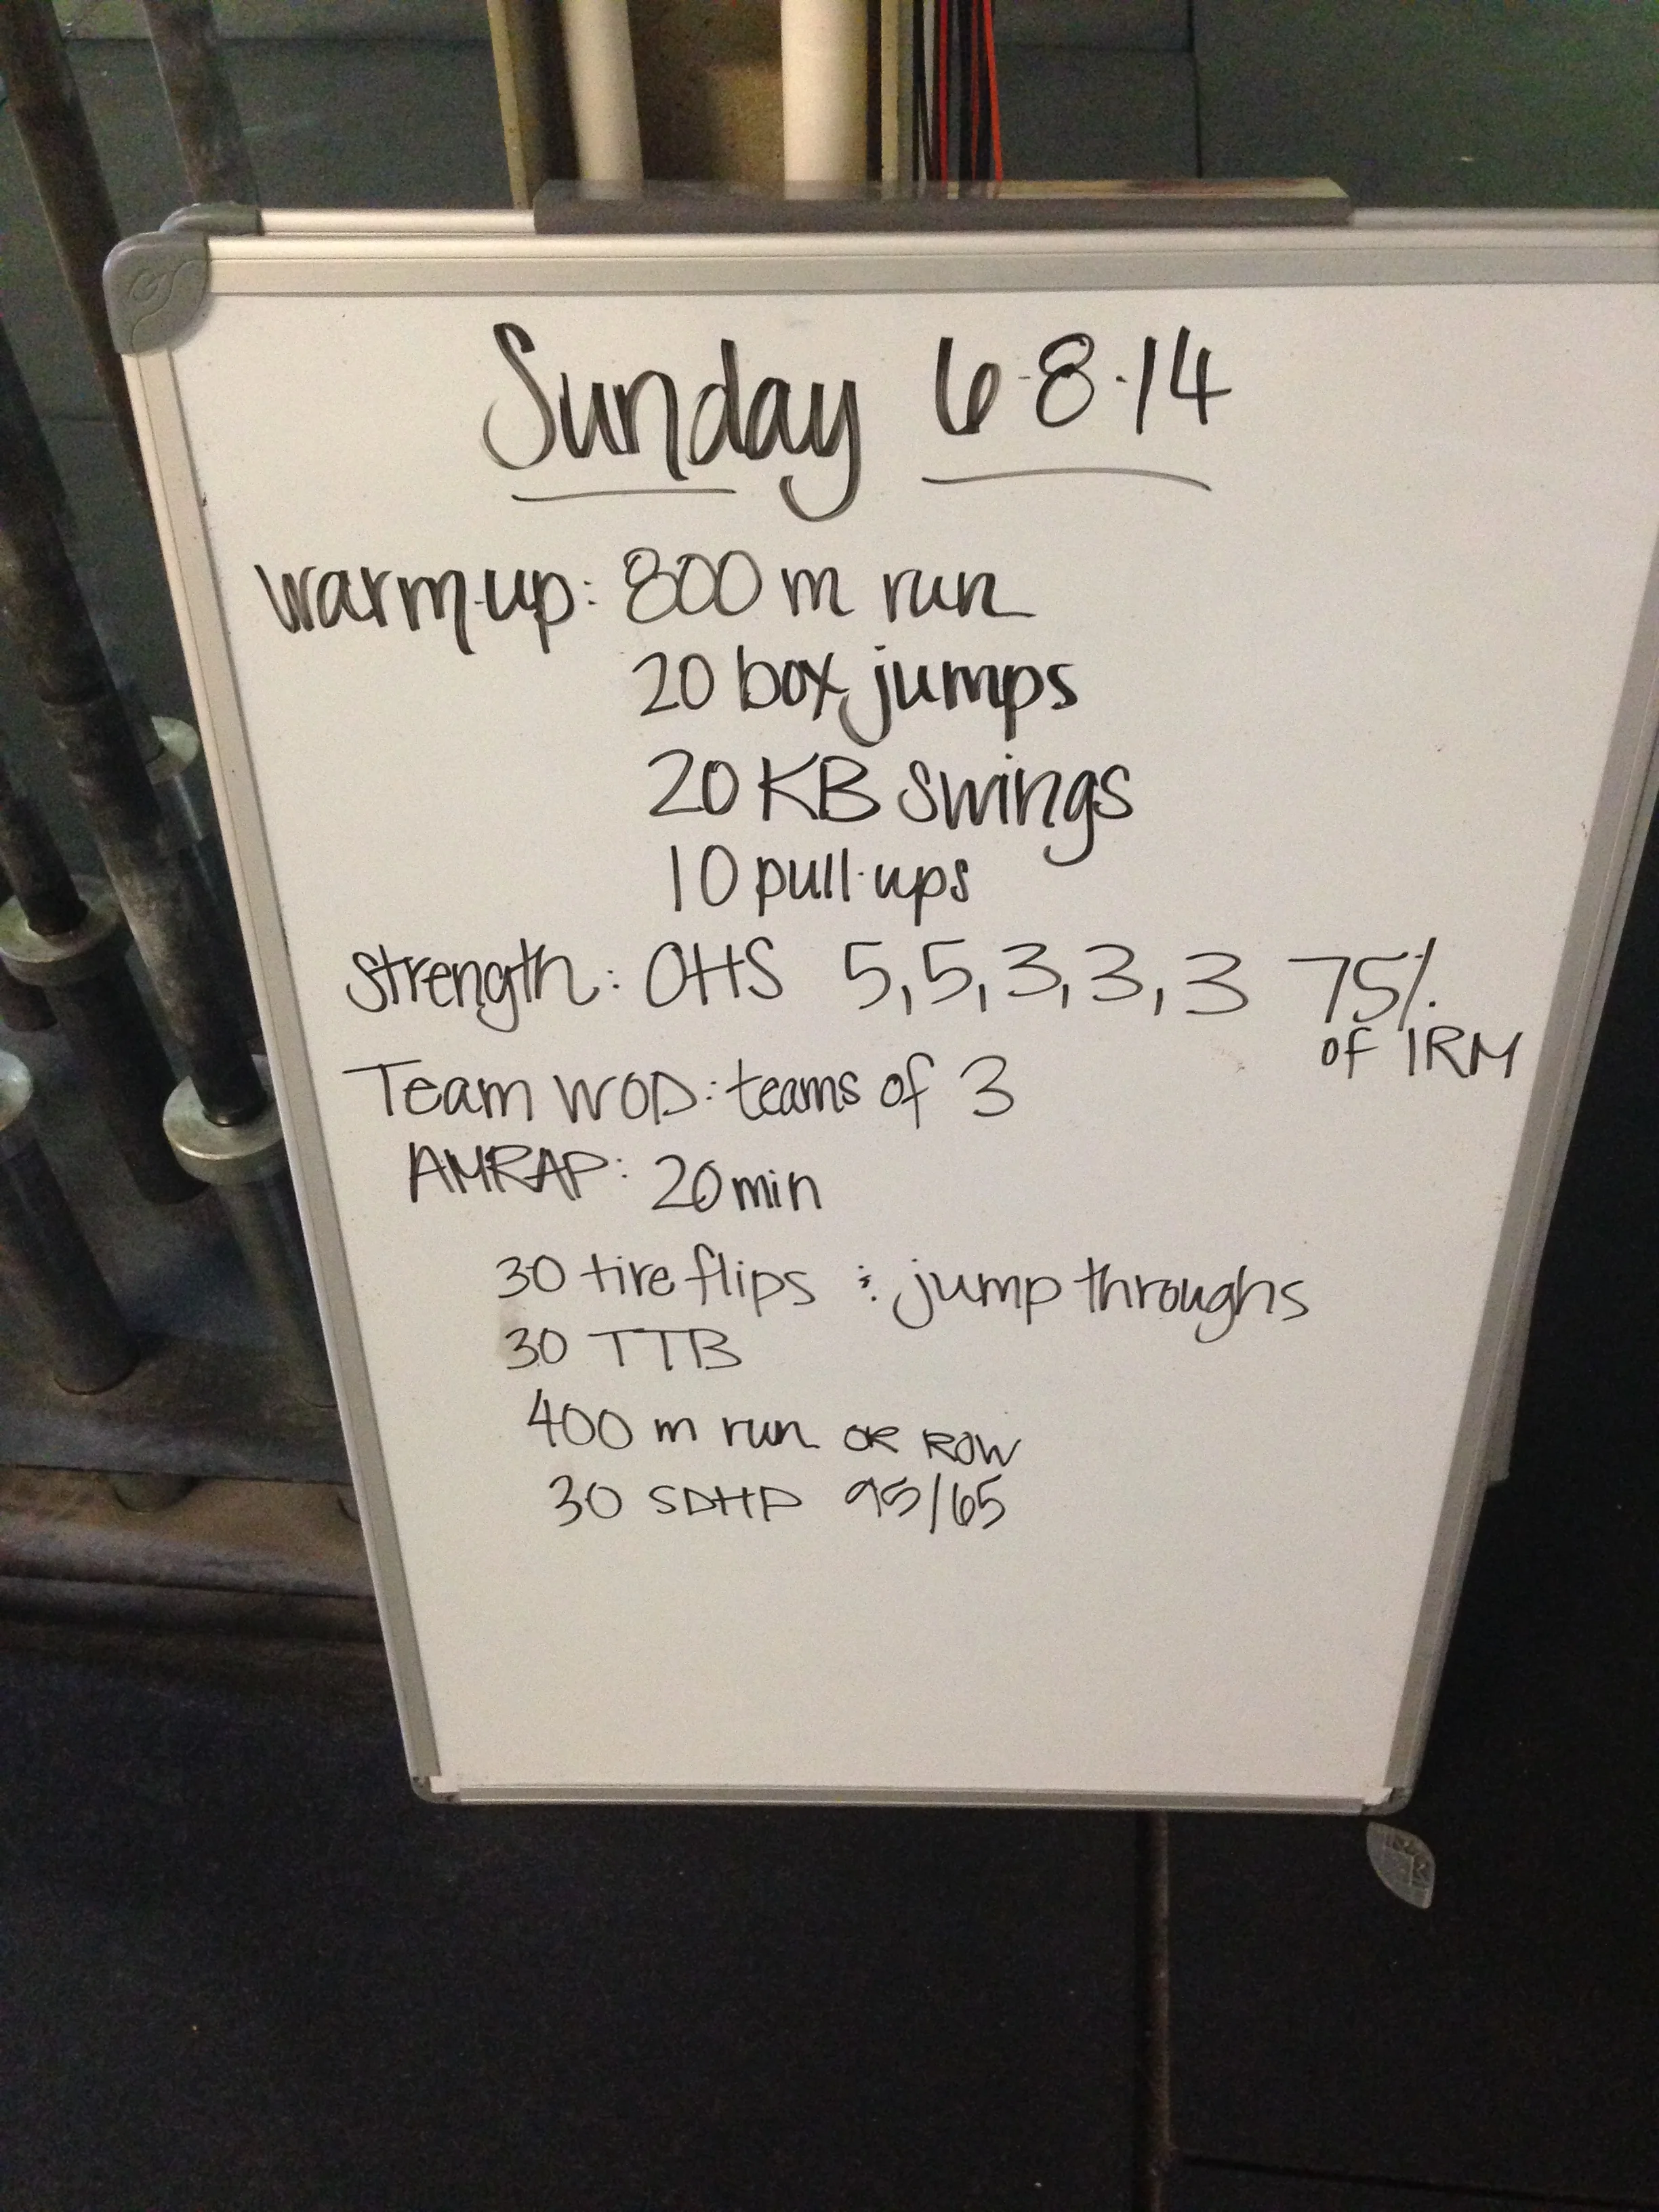 Sunday 6-8-14
Warm-up: 800 m run
20 box jumps
20 KB swings
10 pull-ups
strength: OHS 5,5,3,3,3 75%
of 1RM
Team WOD: teams of 3
AMRAP: 20 min
30 tire flips & jump throughs
30 TTB
400 m run OR ROW
30 SDHP 95/65